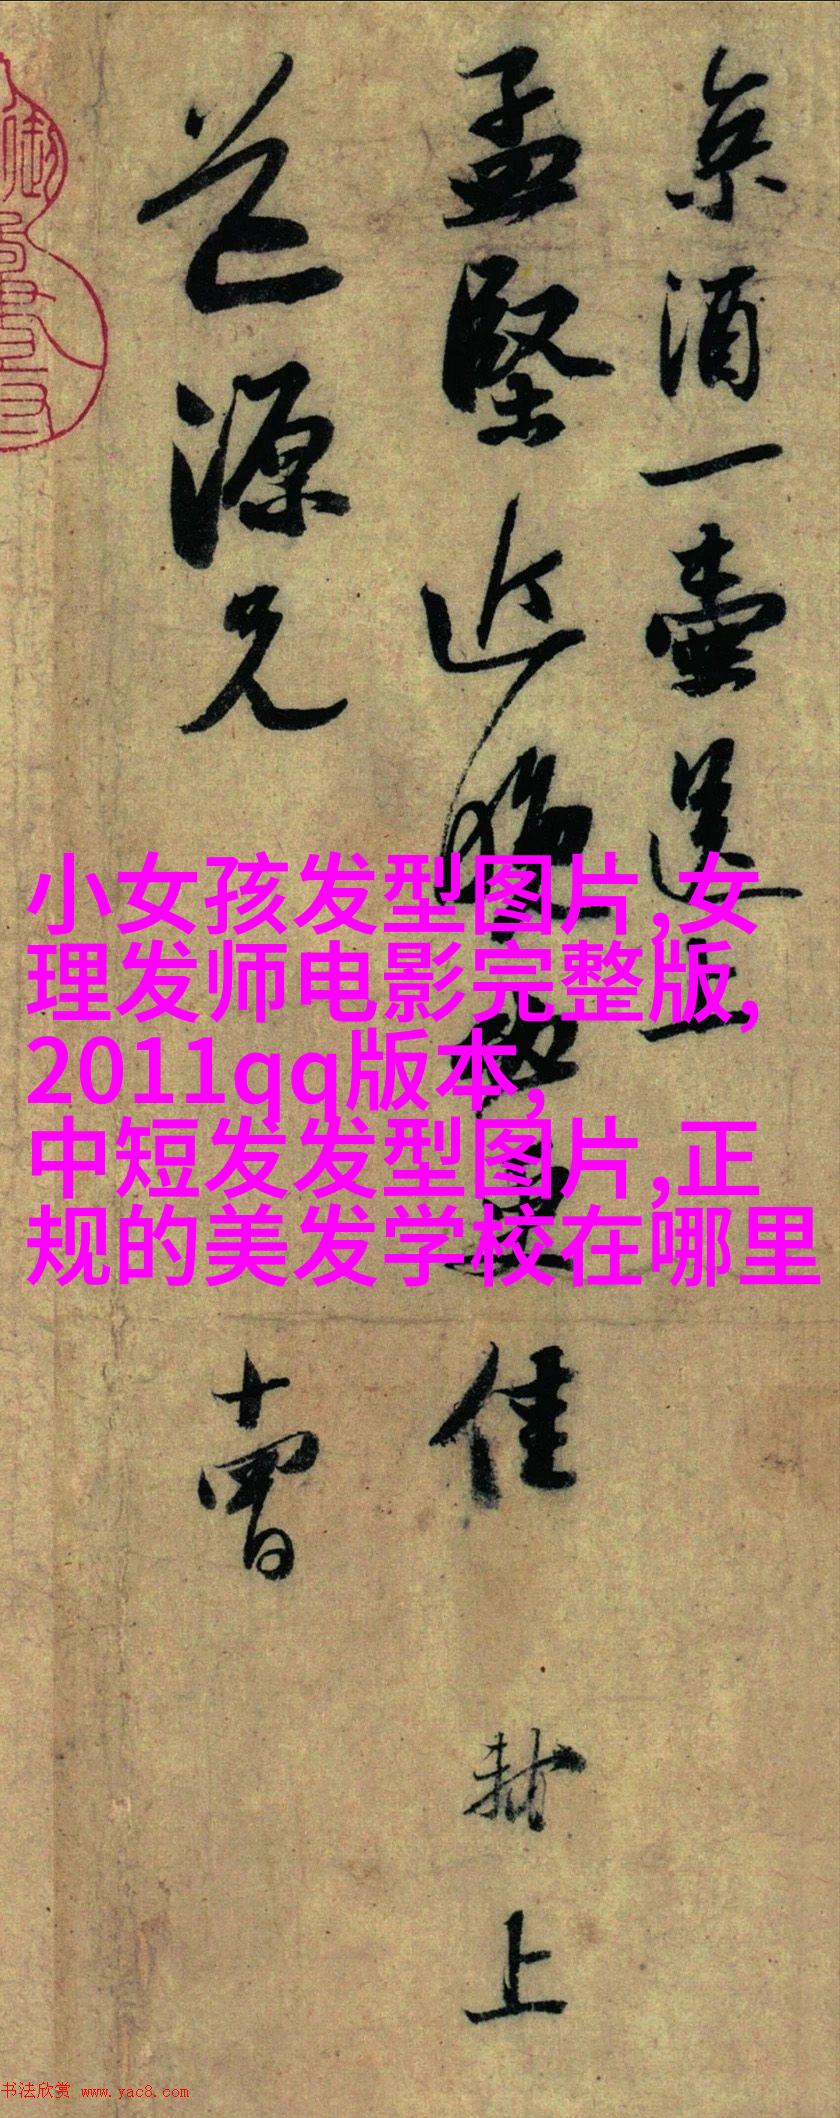 京酒一壺送上
孟堅近晚必更佳
軾上
道源兄
十四日
小女孩发型图片,女
理发师电影完整版,
2011qq版本,
中短发发型图片,正
规的美发学校在哪里
书法欣赏 www.yac8.com